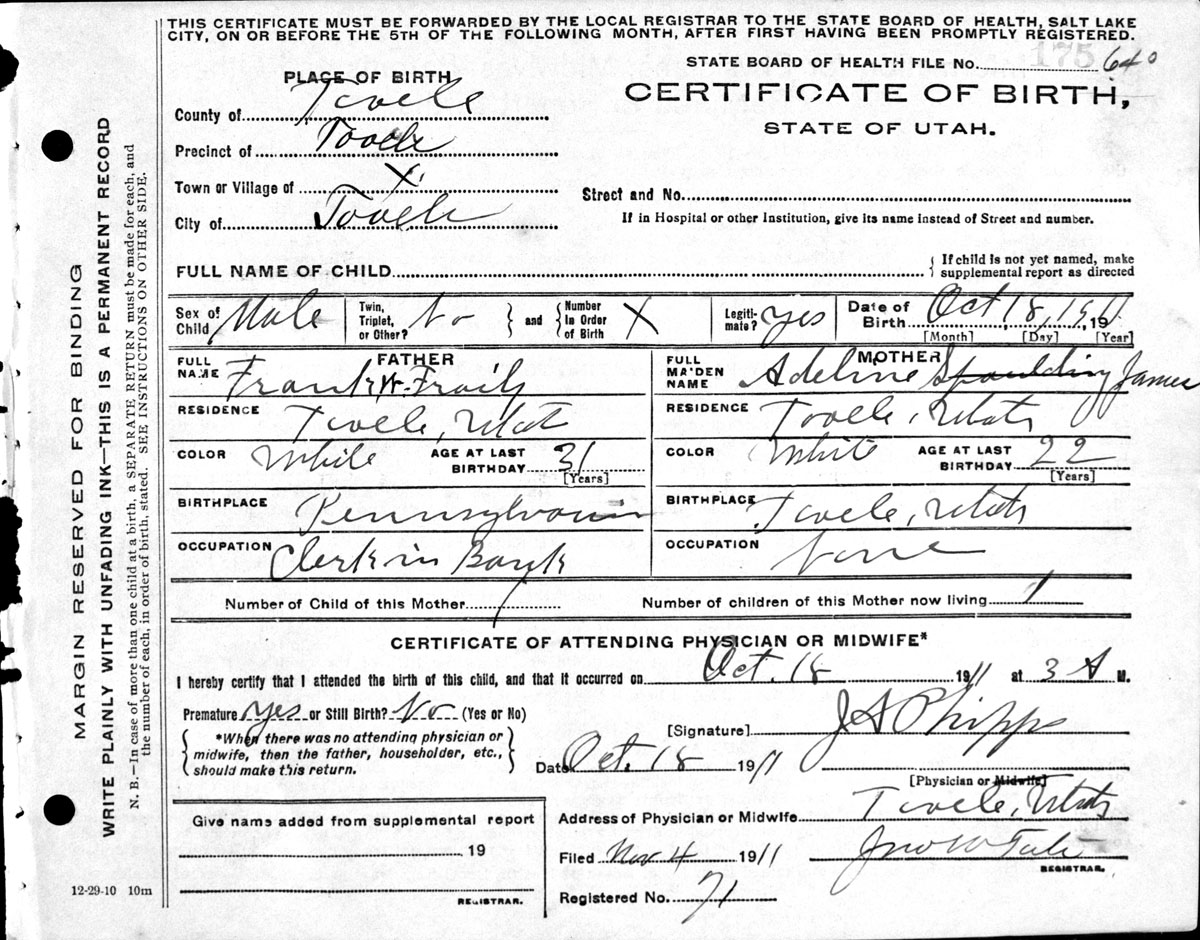 THIS CERTIFICATE MUST BE FORWARDED BY THE LOCAL REGISTRAR TO THE STATE BOARD OF HEALTH, SALT LAKE
CITY, ON OR BEFORE THE 5TH OF THE FOLLOWING MONTH, AFTER FIRST HAVING BEEN PROMPTLY REGISTERED.
175
STATE BOARD OF HEALTH FILE No. 640
PLACE OF BIRTH
CERTIFICATE OF BIRTH,
STATE OF UTAH.
County of Tooele
Precinct of Tooele
Town or Village of X
City of Tooele
Street and No.
If in Hospital or other Institution, give its name instead of Street and number.
FULL NAME OF CHILD
{ If child is not yet named, make
supplemental report as directed
Sex of Child Male
Twin, Triplet, or Other? No } and { Number in Order of Birth X
Legiti-mate? yes
Date of Birth Oct 18, 1911
[Month] [Day] [Year]
FATHER
FULL NAME Frank W. Fraily
MOTHER
FULL MAIDEN NAME Adeline Spaulding James
RESIDENCE Tooele, Utah
RESIDENCE Tooele, Utah
COLOR White AGE AT LAST BIRTHDAY 31 [Years]
COLOR White AGE AT LAST BIRTHDAY 22 [Years]
BIRTHPLACE Pennsylvania
BIRTHPLACE Tooele, Utah
OCCUPATION Clerk in Bank
OCCUPATION None
Number of Child of this Mother 1 Number of children of this Mother now living 1
CERTIFICATE OF ATTENDING PHYSICIAN OR MIDWIFE*
I hereby certify that I attended the birth of this child, and that it occurred on Oct. 18 1911 at 3 A M.
Premature yes or Still Birth? No (Yes or No)
{ *When there was no attending physician or
midwife, then the father, householder, etc.,
should make this return. }
[Signature] J A Phipps
Date Oct. 18 1911
[Physician or Midwife]
Address of Physician or Midwife Tooele, Utah
Give name added from supplemental report
19
REGISTRAR.
Filed Nov 4 1911
Jno W Tate
REGISTRAR.
Registered No. 71
12-29-10 10m
MARGIN RESERVED FOR BINDING
WRITE PLAINLY WITH UNFADING INK—THIS IS A PERMANENT RECORD
N. B.—In case of more than one child at a birth, a SEPARATE RETURN must be made for each, and
the number of each, in order of birth, stated. SEE INSTRUCTIONS ON OTHER SIDE.